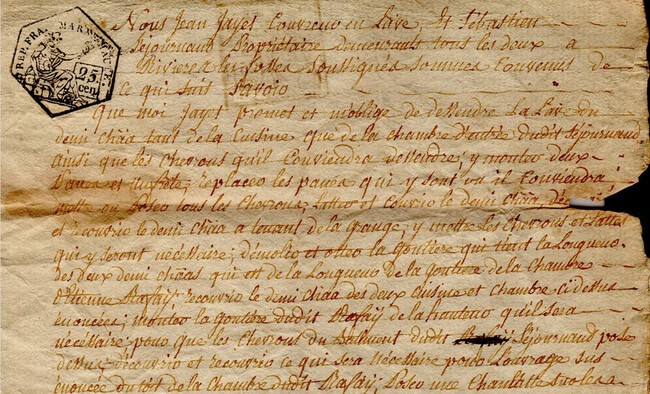 REP. FRA. MARNE HAUTE
25 cen.
Nous Jean Jayet Couvreur en Lave, Et Sébastien
Séjournand Propriétaire demeurants tous les deux a
Riviere les fosses Soussignés Sommes Convenus de
ce qui suit Savoir
Que moi Jayet promet et m'oblige de dessendre La Lave du
demi Châa tant de la Cuisine que de la Chambre d'entrée dudit Séjournand
ainsi que les Chevrons qu'il Conviendra dessendre; y monter deux
panea et un fête, replacer les panea qui y sont ou il Conviendra
mettre ou poser tous les Chevrons, Latter et Couvrir le demi Châa,
et recouvrir le demi Châa a tenant de la grange, y mettre les Chevrons et Lattes
qui y seront nécessaire, démolir et otter la Goutiere qui tient la Longueur
des deux demi Châas qui est de la Longueur de la Goutiere de la Chambre
d'Etienne recouvrir le demi Châa des deux Cuisine et Chambre ci dessus
énoncées; monter la Goutiere dudit de la hauteur qu'il sera
nécessaire pour que les Chevrons du Batiment dudit Séjournand pose
dessus, découvrir et recouvrir ce qui sera nécessaire pour L'ouvrage sus
énoncée du toit de la Chambre dudit poser une Chanlatte sur les